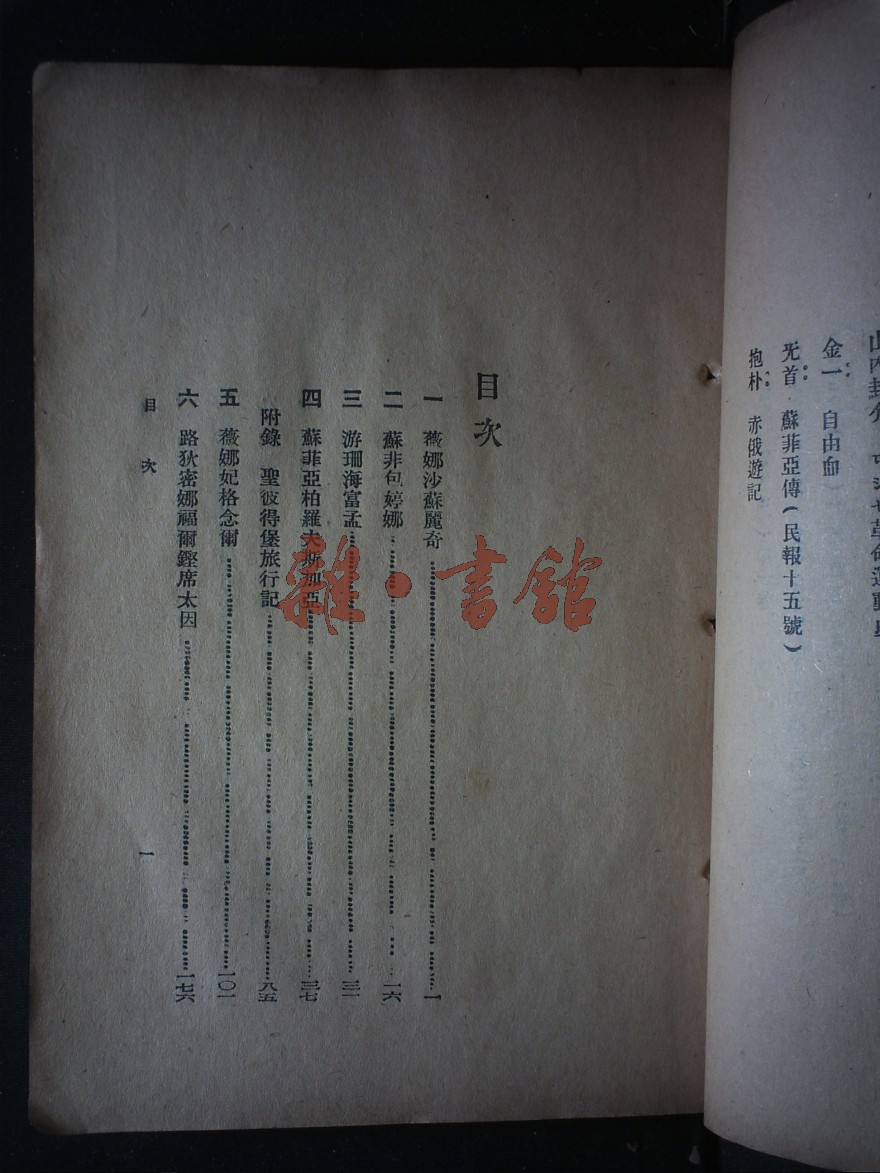 金一 自由血
旡首 蘇菲亞傳（民報十五號）
抱朴 赤俄遊記
目次
一 薇娜沙蘇麗奇 一
二 蘇非包婷娜 一六
三 游珊海富孟 三一
四 蘇菲亞柏羅夫斯加亞 三七
附錄 聖彼得堡旅行記 八五
五 薇娜妃格念爾 一〇一
六 路狄密娜福爾鏗席太因 一七六
目次 一
雜·書館